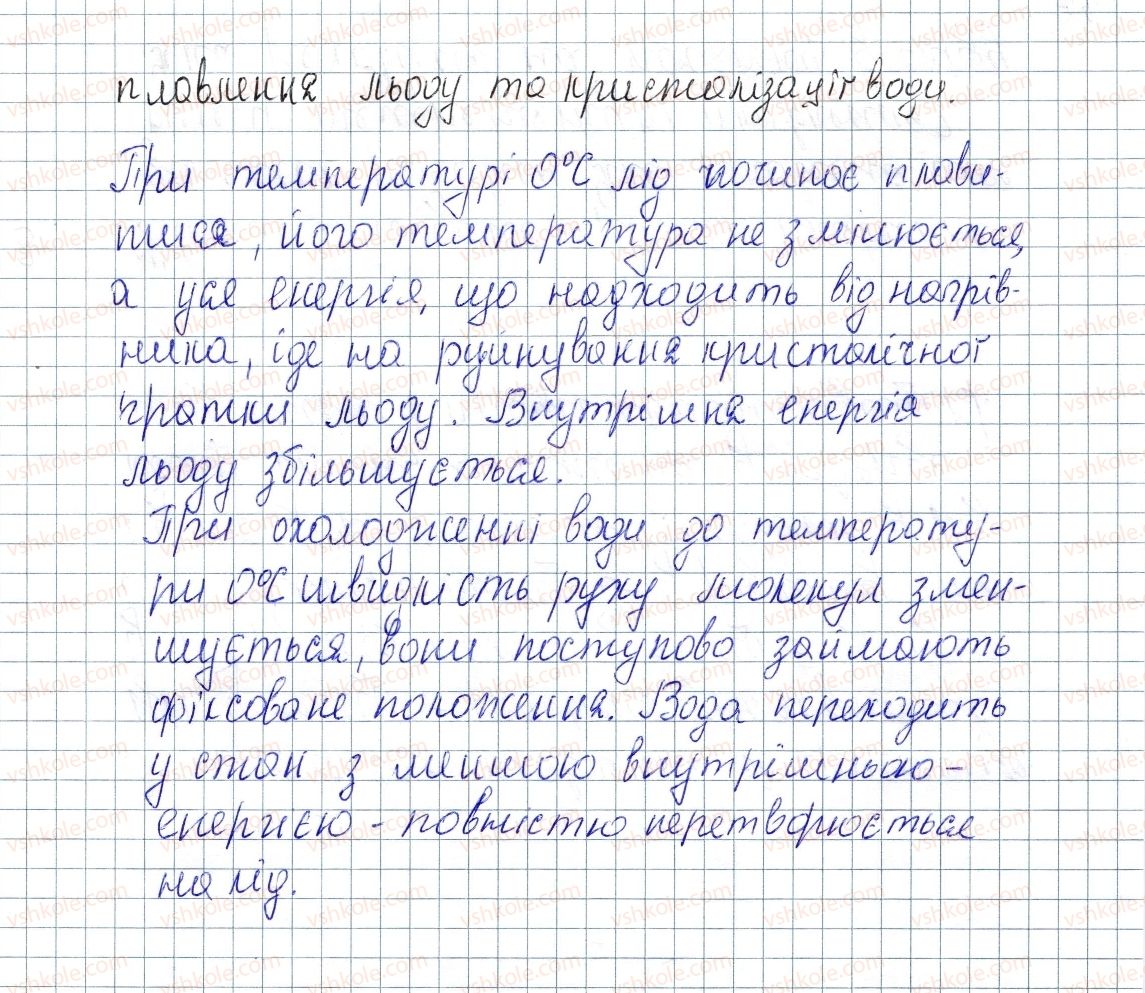 плавлення льоду та кристалізації води.
При температурі 0°C лід починає плави-
тися, його температура не змінюється,
а уся енергія, що надходить від нагрів-
ника, іде на руйнування кристалічної
гратки льоду. Внутрішня енергія
льоду збільшується.
При охолодженні води до температу-
ри 0°C швидкість руху молекул змен-
шується, вони поступово займають
фіксоване положення. Вода переходить
у стан з меншою внутрішньою-
енергією - повністю перетворюється
на лід.